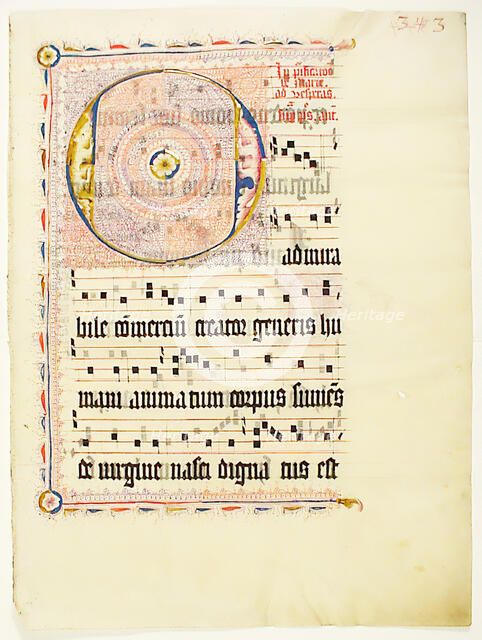 343
In purificatio
be Marie.
ad vesperas.
O admira
bile com̄erciū creator generis hu
mani animatum corpus sumēs
de uirgine nasci digna tus est
Heritage